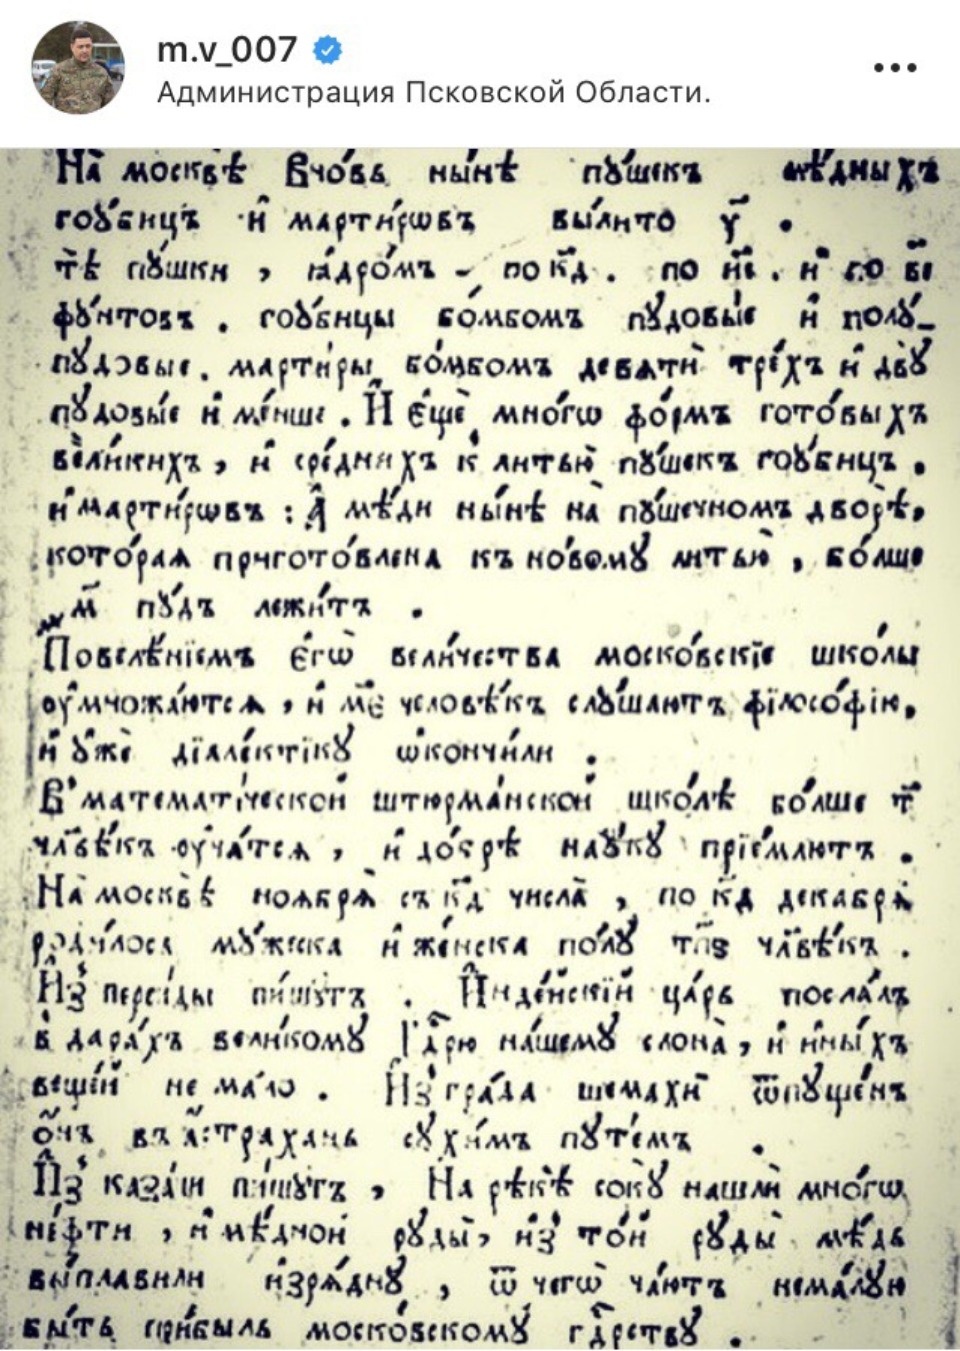 m.v_007
Администрация Псковской Области.
На̀ москвѣ̀ вно́вь ны́нѣ пꙋ́шекъ мѣ́дныхъ
гоꙋ́бицъ и҆ марти́рѡвъ вы́лито у҃ .
тѣ̀ пꙋ́шки , ꙗ҆дро́мъ - по к҃д . по и҃і . и҆ по в҃і
фꙋ́нтовъ . гоꙋ́бицы бо́мбомъ пꙋдовы́е и҆ полꙋ́-
пꙋдовые . марти́ры бо́мбомъ девѧтѝ тре́хъ и҆ двꙋ̀
пꙋдовы́е и҆ ме́нше . И҆ є҆щѐ мно́гѡ фо́рмъ гото́выхъ
вели́кихъ , и҆ сре́днихъ к̾ литью̀ пꙋ́шекъ гоꙋ́бицъ .
и҆ марти́рѡвъ : А҆ мѣ́ди ны́нѣ на̀ пꙋ́шечномъ дворѣ̀ ,
кото́раѧ пригото́влена къ но́вомꙋ литью̀ , бо́лше
҂м҃ пꙋ́дъ лежи́тъ .
Повелѣ́нїемъ є҆гѡ̀ вели́чества моско́вскїе шко́лы
оу҆множа́ютсѧ , и҆ м҃е человѣ́къ слꙋ́шаютъ фїлосо́фїю ,
и҆ ᲂу҆жѐ дїале́ктїкꙋ ѡ҆ко́нчили .
В̾ математи́ческой штюрма́нской шко́лѣ бо́лше т҃
чл҃вѣ́къ оу҆ча́тсѧ , и҆ до́брѣ наꙋ́кꙋ прїе́млютъ .
На̀ москвѣ̀ ноѧбрѧ̀ съ к҃д числа̀ , по к҃д декабрѧ̀
роди́лося мꙋ́жеска и҆ же́нска по́лꙋ т҃п҃ѕ чл҃вѣ́къ .
И҆з̾ персі́ды пи́шꙋтъ . И҆нде́йскїй ца́рь посла́лъ
в̾ дара́хъ вели́комꙋ Гдⷭ҇рю на́шемꙋ слона̀ , и҆ и҆ны́хъ
веще́й не ма́ло . И҆з̾ гра́да шемахѝ ѿпꙋ́щенъ
о҆́нъ въ а҆́страхань сꙋхи́мъ пꙋте́мъ .
И҆з̾ каза́ни пи́шꙋтъ , На рѣкѣ̀ сокꙋ̀ нашлѝ мно́гѡ
не́фти , и҆ мѣ́дной рꙋды̀ , и҆з̾ то́й рꙋды̀ мѣ́дь
вы́плавили и҆зрѧ́днꙋ , ѿ чегѡ̀ ча́ютъ нема́лꙋю
бы́ть при́быль моско́вскомꙋ гдⷭ҇рствꙋ .